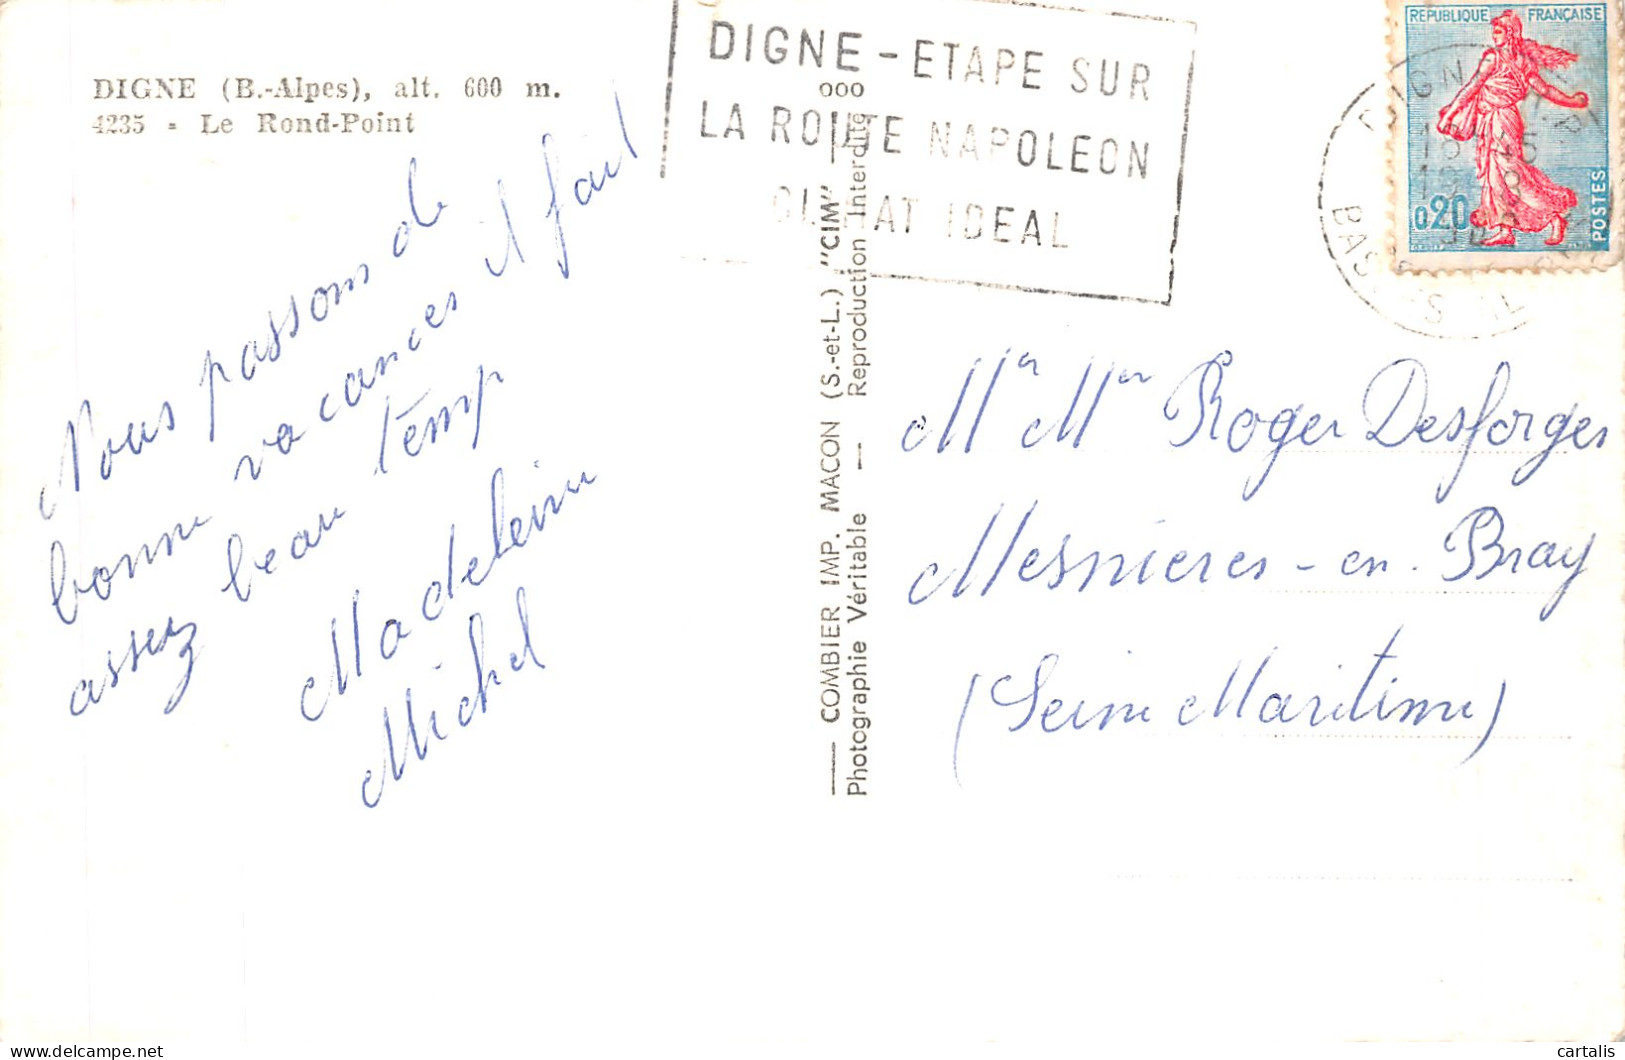 DIGNE (B.-Alpes), alt. 600 m.
4235 - Le Rond-Point
Nous passons de
bonne vacances il fait
assez beau temp
Madeleine
Michel
DIGNE - ETAPE SUR
LA ROUTE NAPOLEON
CLIMAT IDEAL
ooo
COMBIER IMP. MACON (S.-et-L.) "CIM"
Photographie Véritable — Reproduction Interdite
REPUBLIQUE FRANÇAISE
0,20
POSTES
Mr Mr Roger Desforges
Mesnieres-en-Bray
(Seine Maritime)
cartalis